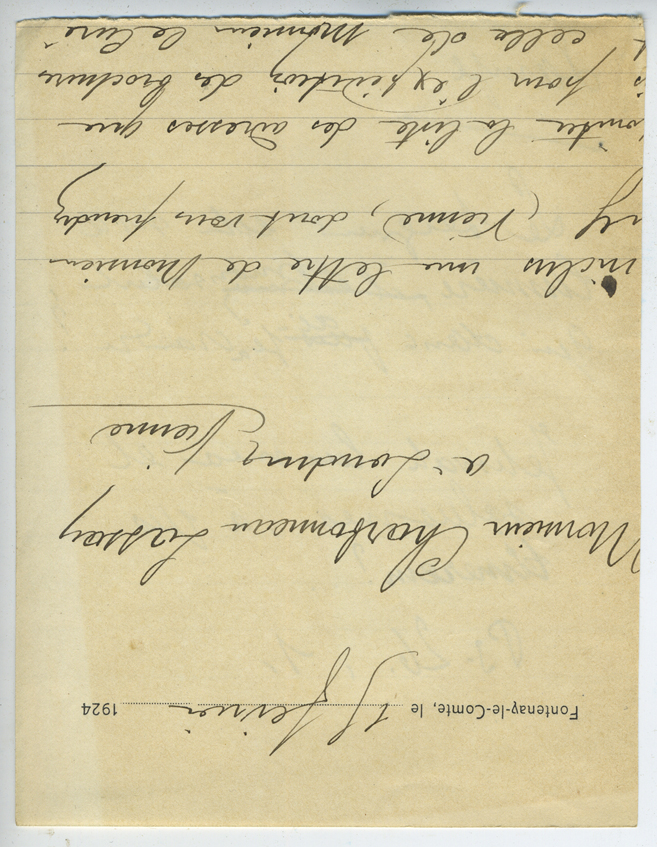 Fontenay-le-Comte, le 15 février 1924
Monsieur Charbonneau Lassay
à Loudun Vienne
inclus une lettre de Monsieur
(Vienne), dont vous prendrez
la liste des adresses que
pour l'expédition des brochures
celle de Monsieur le Curé